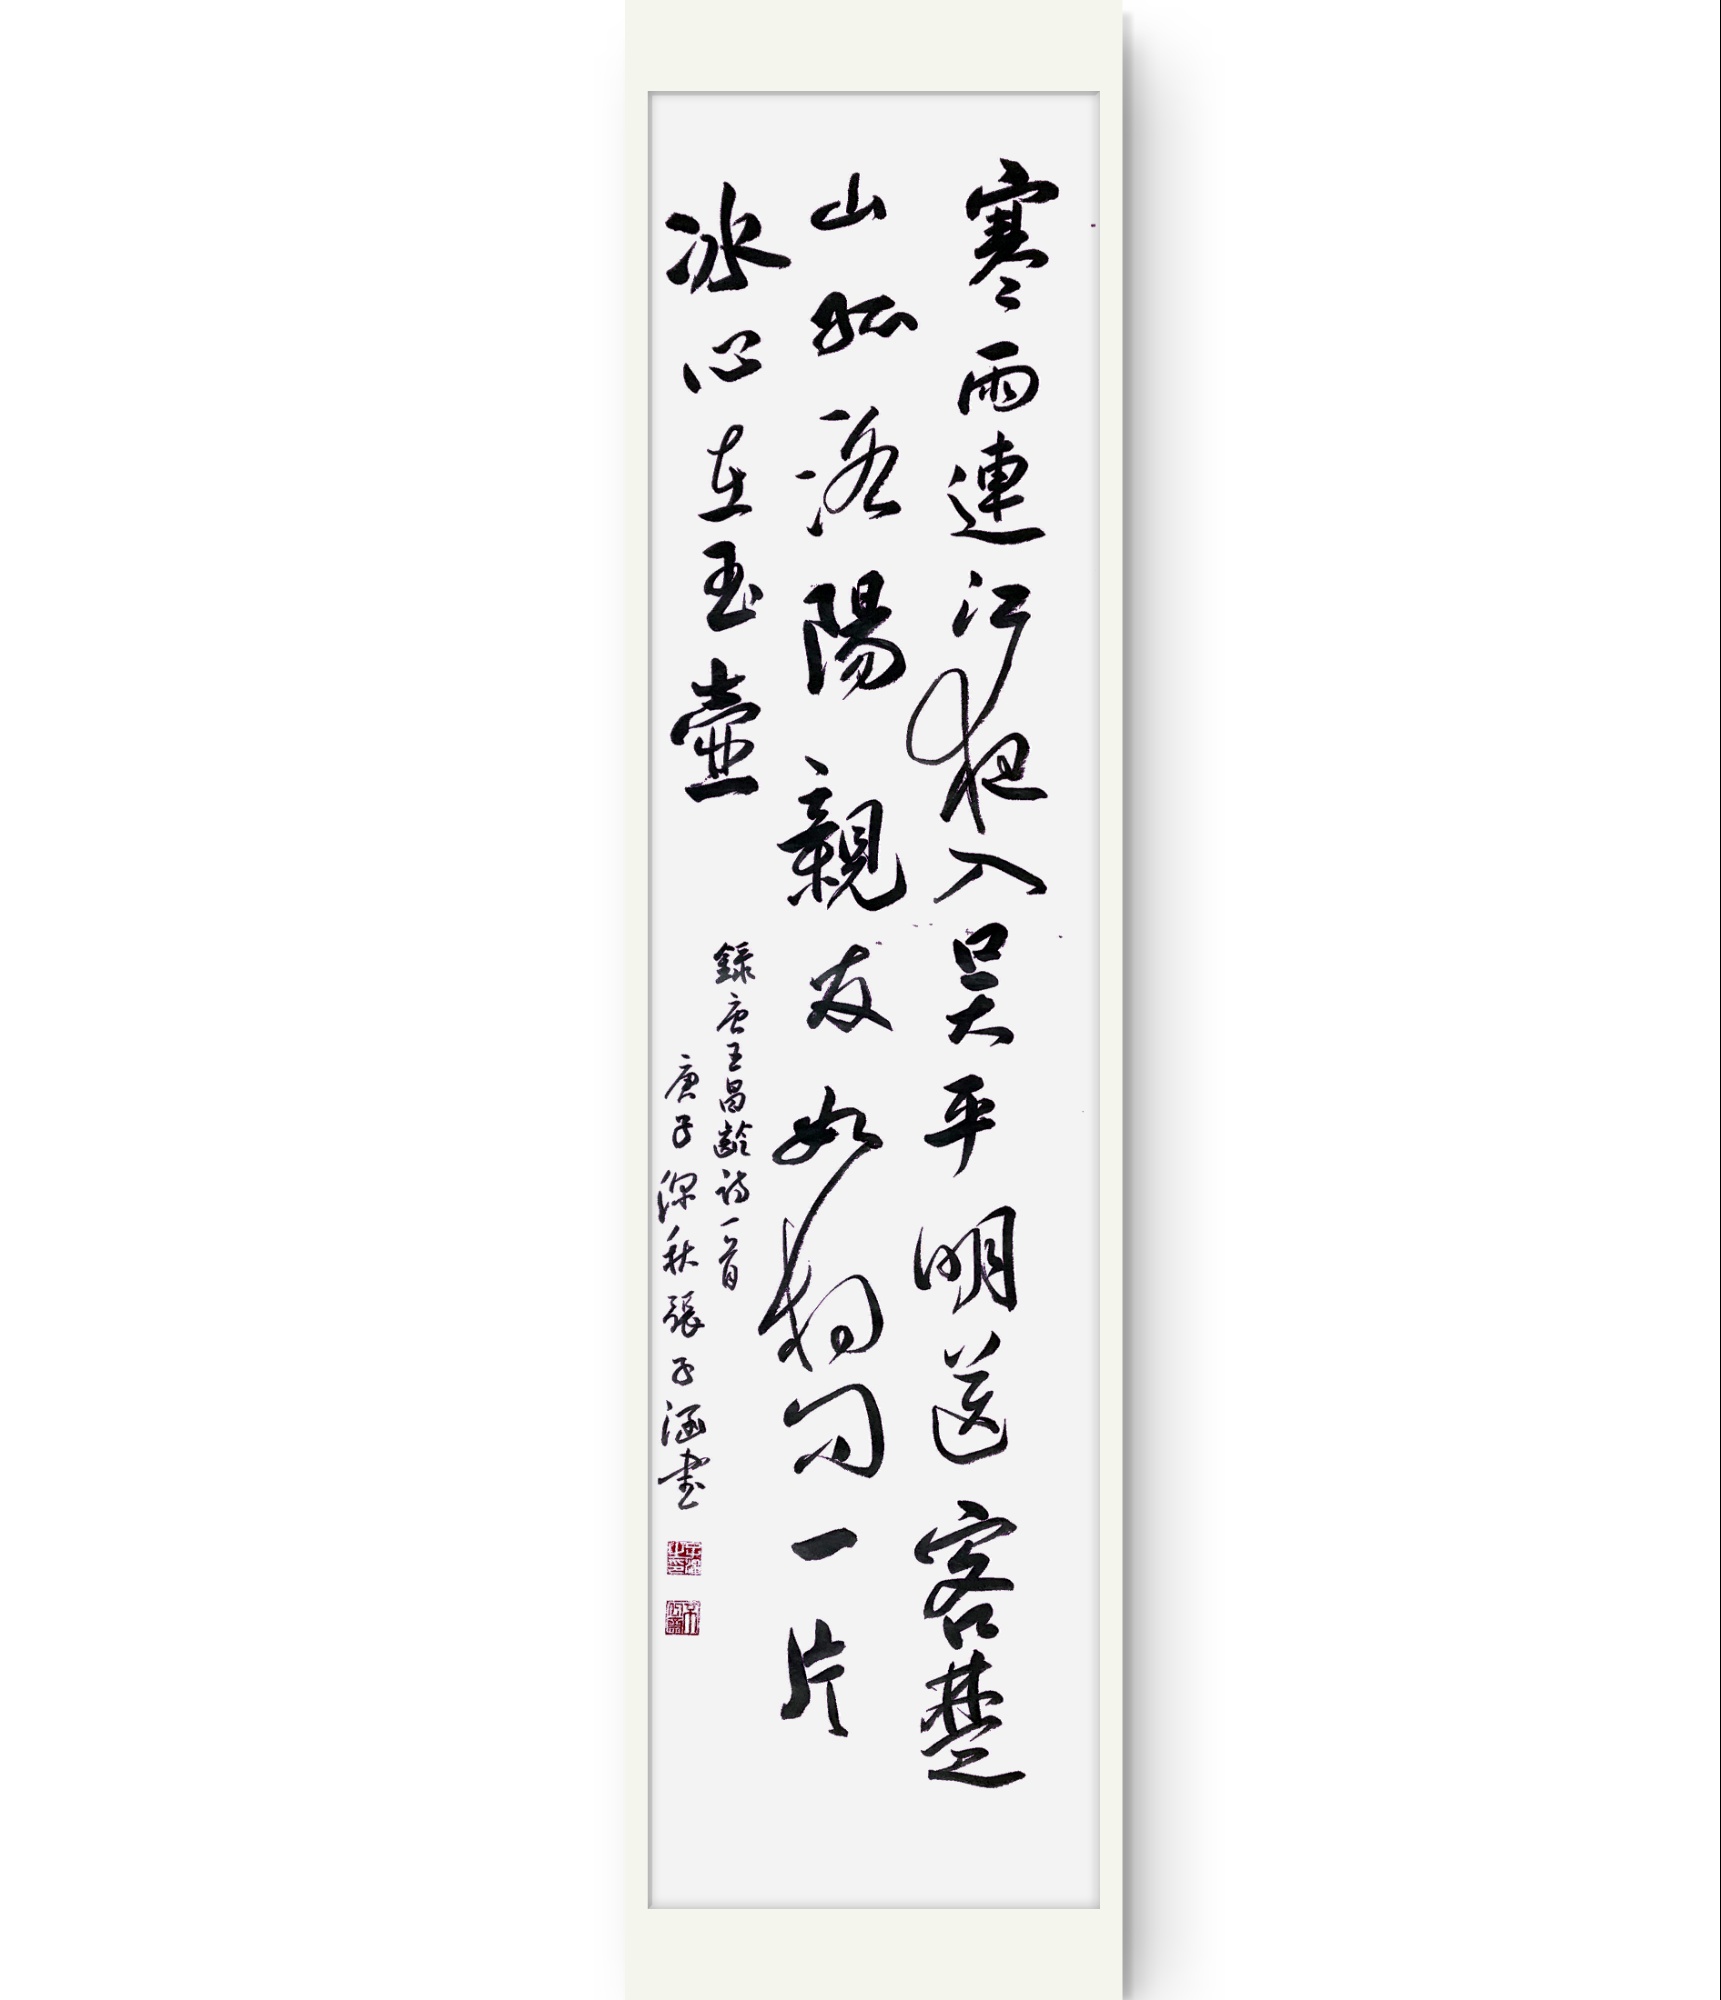 寒雨連江夜入吳平明送客楚
山孤洛陽親友如相問一片
冰心在玉壺
錄唐王昌齡詩一首
庚子深秋張子涵書